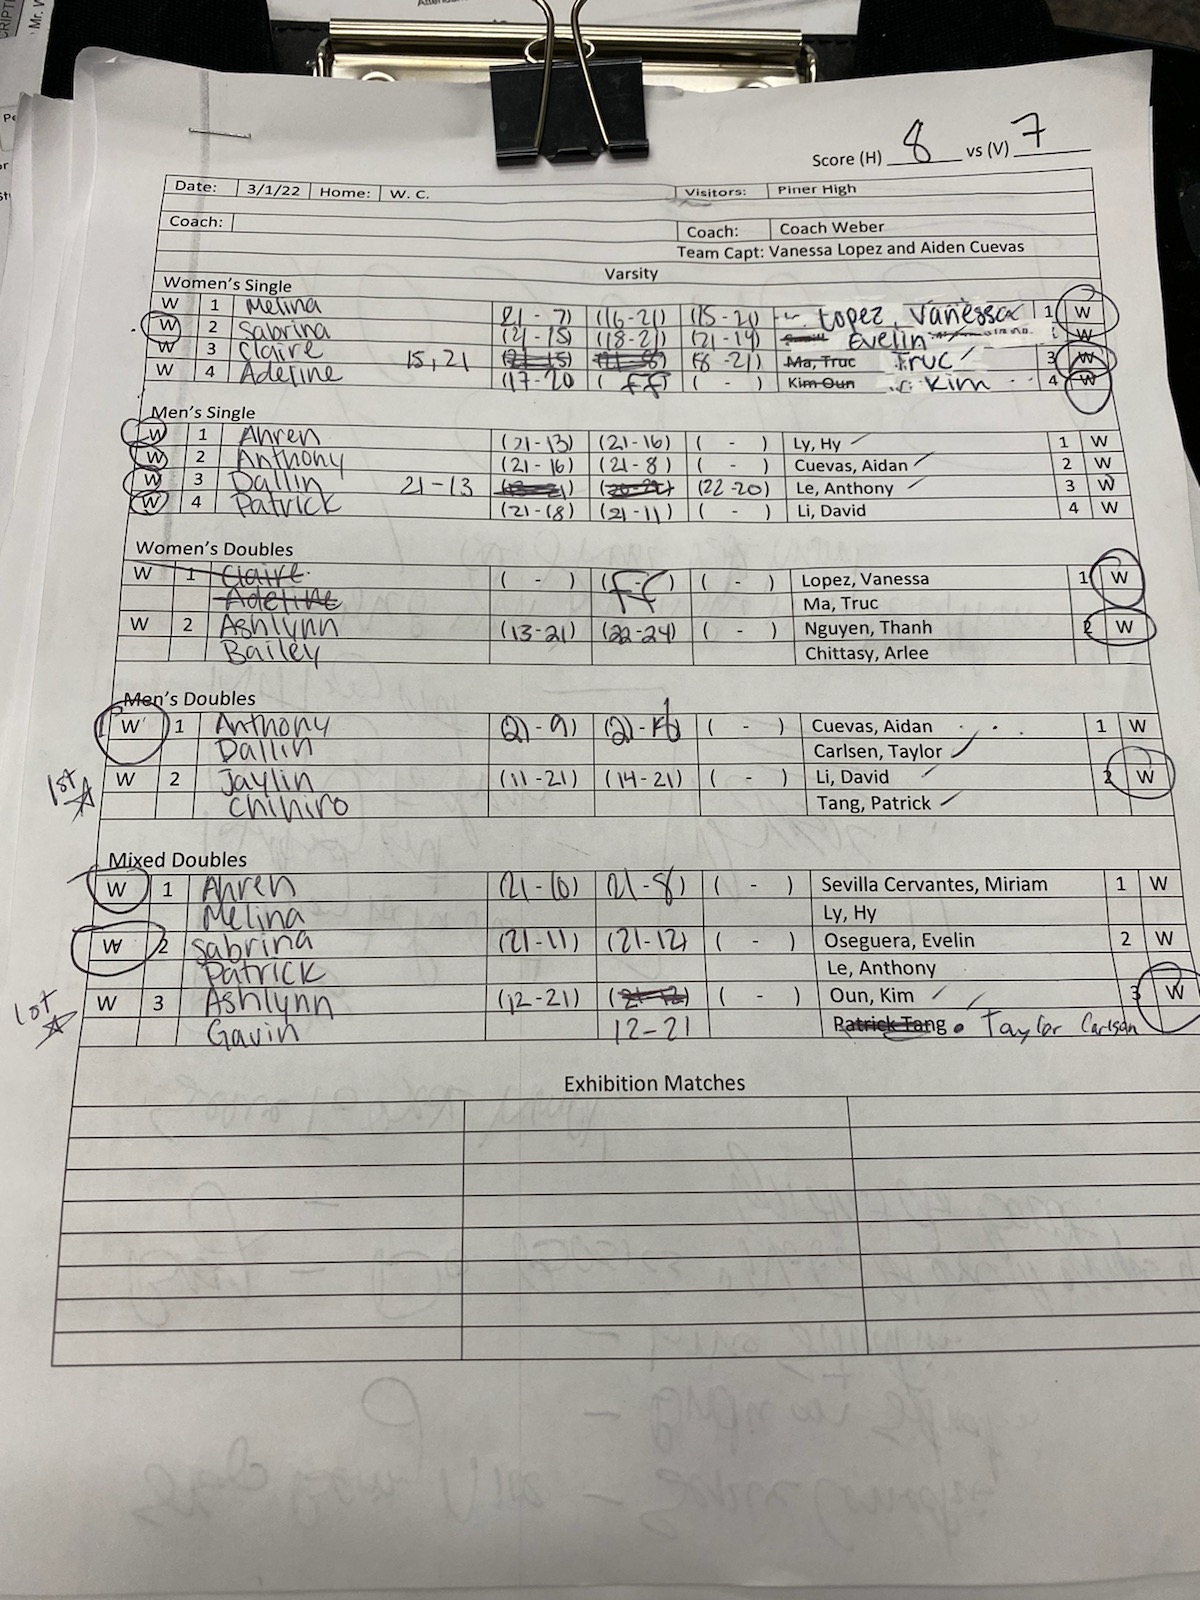 Score (H) 8 vs (V) 7
Date: 3/1/22 Home: W. C. Visitors: Piner High
Coach: Coach: Coach Weber
Team Capt: Vanessa Lopez and Aiden Cuevas
Varsity
Women's Single
W 1 Melina (21 - 7) (16-21) (15-21) Lopez, Vanessa 1 W
W 2 Sabrina (21-15) (18-21) (21-19) Evelin W
W 3 Claire 15,21 (21-15) (21-8) (8-21) Ma, Truc Truc 3 W
W 4 Adeline (17-20 ( ff) ( - ) Kim Oun Kim 4 W
Men's Single
W 1 Ahren (21-13) (21-16) ( - ) Ly, Hy 1 W
W 2 Anthony (21-16) (21-8) ( - ) Cuevas, Aidan 2 W
W 3 Dallin 21-13 (22-20) Le, Anthony 3 W
W 4 Patrick (21-18) (21-11) ( - ) Li, David 4 W
Women's Doubles
W 1 Claire ( - ) (ff) ( - ) Lopez, Vanessa 1 W
Adeline Ma, Truc
W 2 Ashlynn (13-21) (22-24) ( - ) Nguyen, Thanh 2 W
Bailey Chittasy, Arlee
Men's Doubles
W 1 Anthony (21-9) ( - ) Cuevas, Aidan 1 W
Dallin Carlsen, Taylor
1st W 2 Jaylin (11-21) (14-21) ( - ) Li, David 2 W
Chihiro Tang, Patrick
Mixed Doubles
W 1 Ahren 21-8) ( - ) Sevilla Cervantes, Miriam 1 W
Melina Ly, Hy
W 2 Sabrina (21-11) (21-12) ( - ) Oseguera, Evelin 2 W
Patrick Le, Anthony
1st W 3 Ashlynn (12-21) (21-12) ( - ) Oun, Kim 3 W
Gavin 12-21 Patrick Tang Taylor Carlson
Exhibition Matches